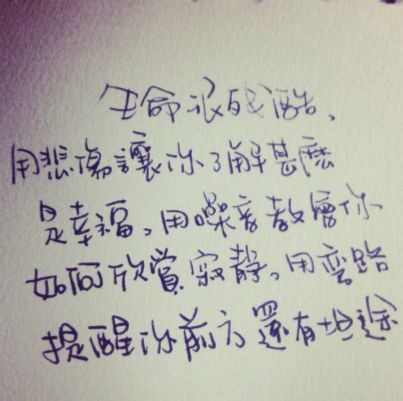 生命很殘酷、
用悲傷讓你了解甚麼
是幸福、用噪音教會你
如何欣賞寂靜、用弯路
提醒你前方還有坦途